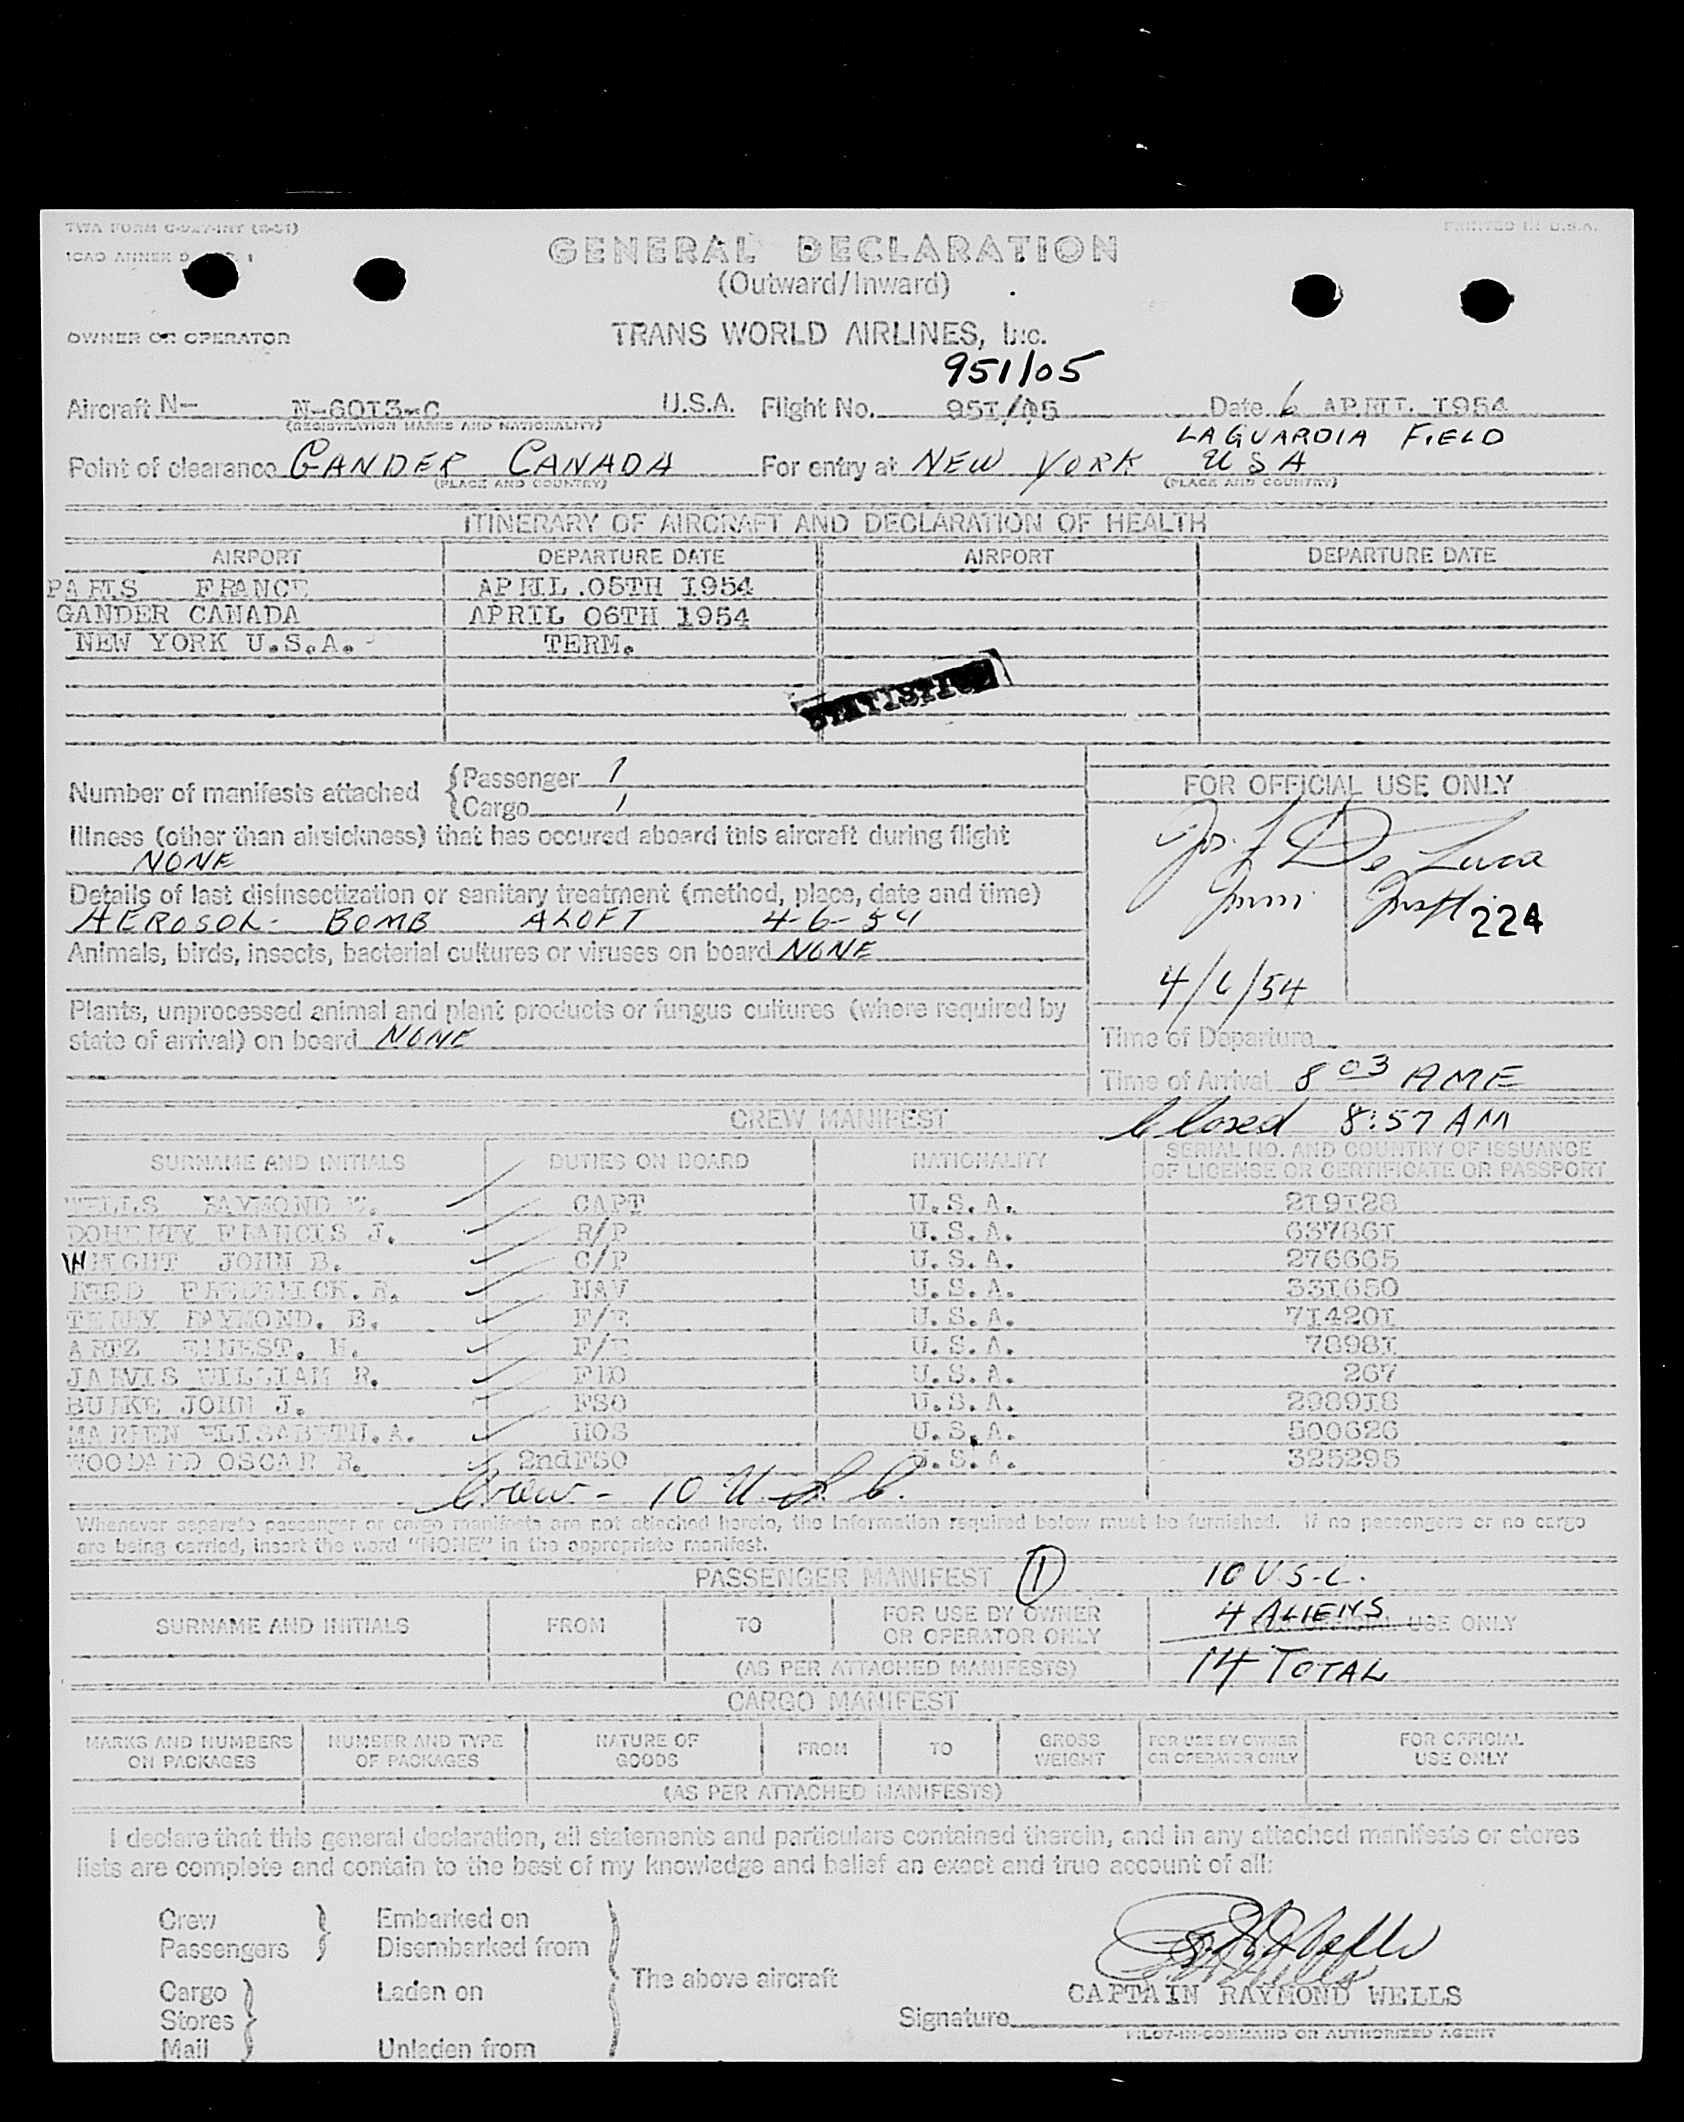 TWA FORM C-927-INT (8-51)
PRINTED IN U.S.A.
ICAO ANNEX 9
GENERAL DECLARATION
(Outward/Inward)
OWNER OR OPERATOR TRANS WORLD AIRLINES, Inc.
951/05
Aircraft N- N-6013-C U.S.A. Flight No. 951/05 Date 6 APRIL 1954
(REGISTRATION MARKS AND NATIONALITY)
LAGUARDIA FIELD
Point of clearance GANDER CANADA For entry at NEW YORK USA
(PLACE AND COUNTRY) (PLACE AND COUNTRY)
ITINERARY OF AIRCRAFT AND DECLARATION OF HEALTH
AIRPORT DEPARTURE DATE AIRPORT DEPARTURE DATE
PARIS FRANCE APRIL .05TH 1954
GANDER CANADA APRIL 06TH 1954
NEW YORK U.S.A. TERM.
STATISTICS
Number of manifests attached {Passenger 1
{Cargo 1
FOR OFFICIAL USE ONLY
Illness (other than airsickness) that has occured aboard this aircraft during flight
NONE
Jos. L De Luca
Details of last disinsectization or sanitary treatment (method, place, date and time)
Imm Insp 224
AEROSOL- BOMB ALOFT 4-6-54
Animals, birds, insects, bacterial cultures or viruses on board NONE
4/6/54
Plants, unprocessed animal and plant products or fungus cultures (where required by
state of arrival) on board NONE
Time of Departure
Time of Arrival 8 03 AME
CREW MANIFEST Closed 8:57 AM
SURNAME AND INITIALS DUTIES ON BOARD NATIONALITY SERIAL NO. AND COUNTRY OF ISSUANCE
OF LICENSE OR CERTIFICATE OR PASSPORT
WELLS RAYMOND W. CAPT U.S.A. 219128
DOHERTY FRANCIS J. R/P U.S.A. 637861
WRIGHT JOHN B. C/P U.S.A. 276665
REED FREDERICK. R. NAV U.S.A. 331650
TERRY RAYMOND. B. F/E U.S.A. 714201
ARTZ ERNEST. H. F/E U.S.A. 78981
JARVIS WILLIAM R. FIO U.S.A. 267
BURKE JOHN J. FSO U.S.A. 298918
MARREN ELISABETH. A. HOS U.S.A. 500626
WOODARD OSCAR R. 2nd FSO U.S.A. 325295
Crew - 10 U.S.C.
Whenever separate passenger or cargo manifests are not attached hereto, the information required below must be furnished. If no passengers or no cargo
are being carried, insert the word "NONE" in the appropriate manifest.
PASSENGER MANIFEST 1 10 US-C.
SURNAME AND INITIALS FROM TO FOR USE BY OWNER OR OPERATOR ONLY FOR OFFICIAL USE ONLY
4 ALIENS
(AS PER ATTACHED MANIFESTS) 14 TOTAL
CARGO MANIFEST
MARKS AND NUMBERS ON PACKAGES NUMBER AND TYPE OF PACKAGES NATURE OF GOODS FROM TO GROSS WEIGHT FOR USE BY OWNER OR OPERATOR ONLY FOR OFFICIAL USE ONLY
(AS PER ATTACHED MANIFESTS)
I declare that this general declaration, all statements and particulars contained therein, and in any attached manifests or stores
lists are complete and contain to the best of my knowledge and belief an exact and true account of all:
Crew Embarked on
Passengers Disembarked from
The above aircraft
Cargo Laden on
Stores
Mail Unladen from
CAPTAIN RAYMOND WELLS
Signature
PILOT-IN-COMMAND OR AUTHORIZED AGENT